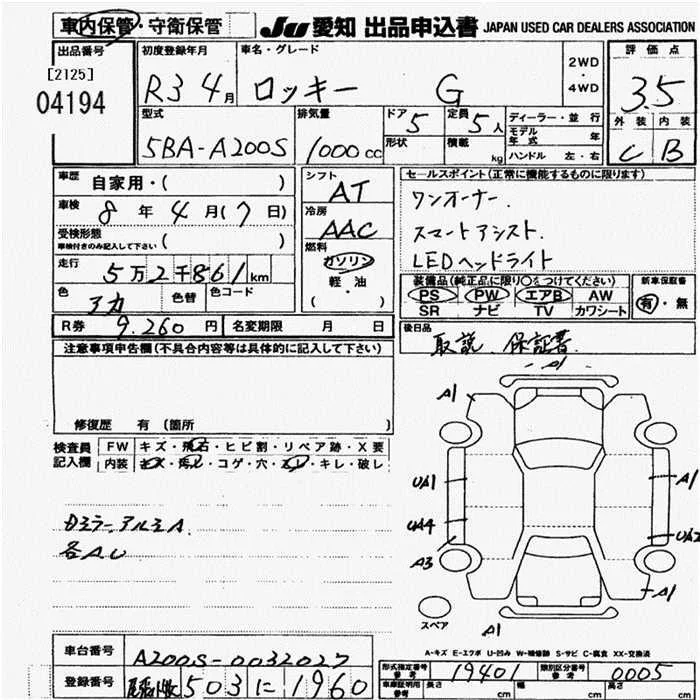 車内保管・守衛保管 JU 愛知 出品申込書 JAPAN USED CAR DEALERS ASSOCIATION
出品番号 初度登録年月 車名・グレード 2WD 評価点
[2125] R3 4月 ロッキー G ・4WD 3.5
04194 型式 排気量 ドア 5 定員 5人 ディーラー・並行 外装 内装
5BA-A200S 1000cc 形状 積載 kg モデル年式 年 C B
ハンドル 左・右
車歴 自家用・( ) シフト AT セールスポイント(正常に機能するものに限ります)
車検 8年4月(7日) 冷房 AAC ワンオーナー.
受検形態 車検付きのみ記入して下さい ( ) 燃料 スマートアシスト.
走行 5万2千861km ガソリン LEDヘッドライト
色 アカ 色替 色コード 軽・油 装備品(純正品に限り○をつけてください) 新車保証書
・( ) PS PW エアB AW 有・無
SR ナビ TV カワシート
R券 9.260円 名変期限 月 日 後日品
注意事項申告欄(不具合内容等は具体的に記入して下さい) 取説. 保証書.
A1
A1
修復歴 有 (箇所 )
検査員 FW キズ・飛石・ヒビ割・リペア跡・X要
記入欄 内装 キズ・汚レ・コゲ・穴・スレ・キレ・破レ
UA1 A1
UA4 UA2
A3
DミラーアルミA.
各AU
A1
スペア A1
A-キズ E-エクボ U-凹み W-補修跡 S-サビ C-腐食 XX-交換済
車台番号 A200S-0032027 形式指定番号 参考 19401 類別区分番号 参考 0005
登録番号 503に1960 車庫証明用 参考 長さ cm 幅 cm 高さ cm